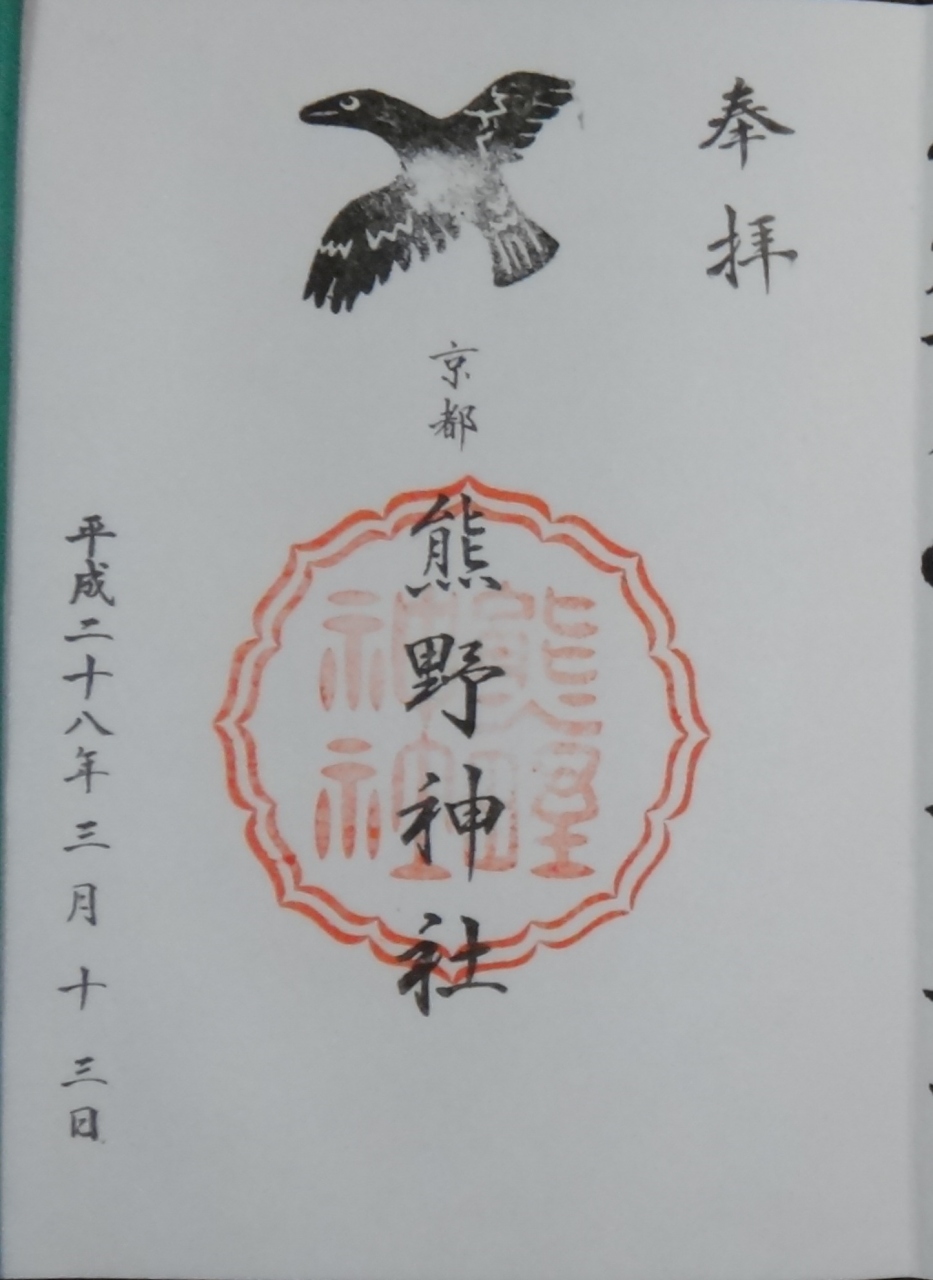 奉拝
京都
熊野神社
熊野
神社
平成二十八年三月十三日